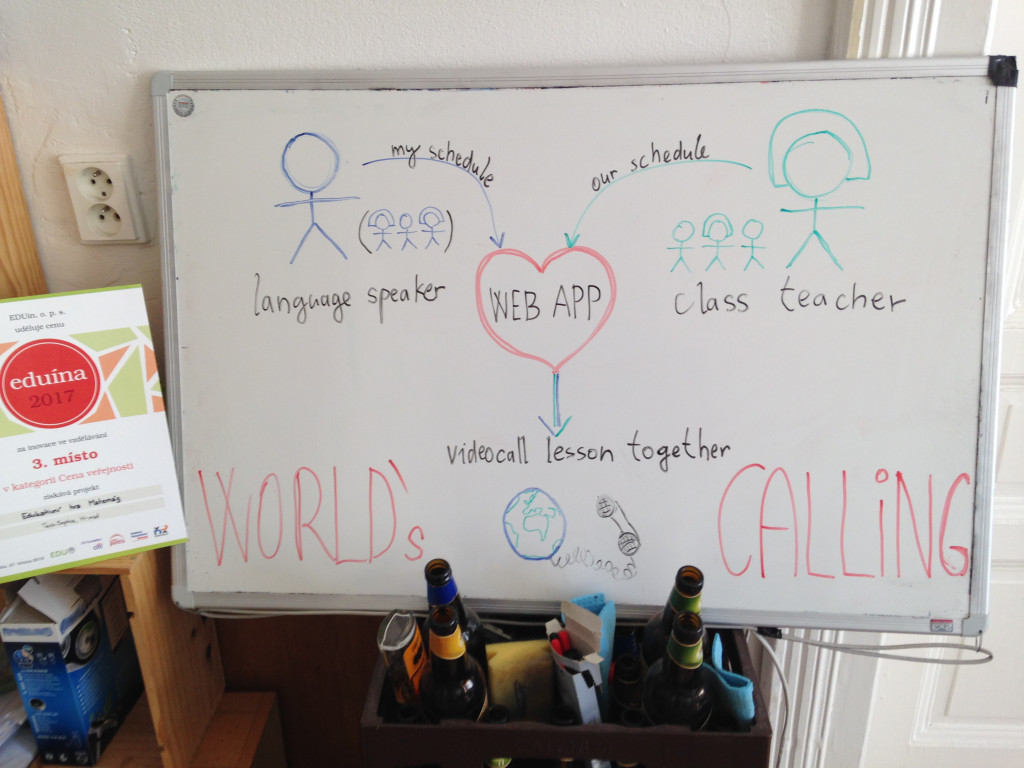 my schedule
our schedule
language speaker
WEB APP
class teacher
videocall lesson together
WORLD's
CALLING
EDUin, o. p. s.
uděluje cenu
eduína
2017
za inovace ve vzdělávání
3. místo
v kategorii Cena veřejnosti
získává projekt
Edukativní hra Matemág
EDUin